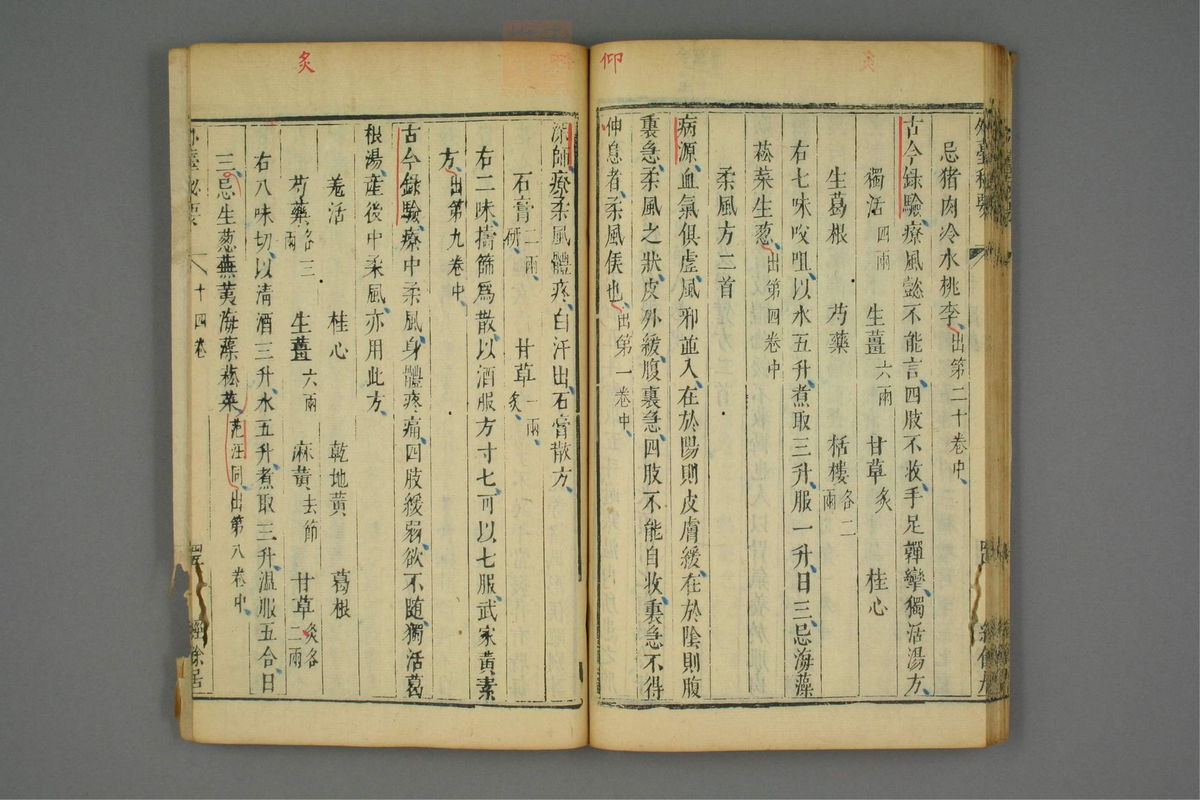 仰
忌猪肉冷水桃李出第二十卷中
古今錄驗療風懿不能言四肢不收手足嚲攣獨活湯方
獨活四兩 生薑六兩 甘草炙 桂心
生葛根 芍藥 栝樓各二兩
右七味㕮咀以水五升煮取三升服一升日三忌海藻
菘菜生葱出第四卷中
柔風方二首
病源血氣俱虛風邪並入在於陽則皮膚緩在於陰則腹
裏急柔風之狀皮外緩腹裏急四肢不能自收裏急不得
仲息者柔風候也出第一卷中
炙
深師療柔風體疼白汗出石膏散方
石膏二兩研 甘草一兩炙
右二味擣篩爲散以酒服方寸七可以七服武家黄素
方出第九卷中
古今錄驗療中柔風身體疼痛四肢緩弱欲不隨獨活葛
根湯產後中柔風亦用此方
羗活 桂心 乾地黄 葛根
芍藥各三兩 生薑六兩 麻黄去節 甘草炙各二兩
右八味切以清酒三升水五升煮取三升温服五合日
三忌生葱蕪荑海藻菘菜范汪同出第八卷中
外臺秘要 十四卷 經餘居